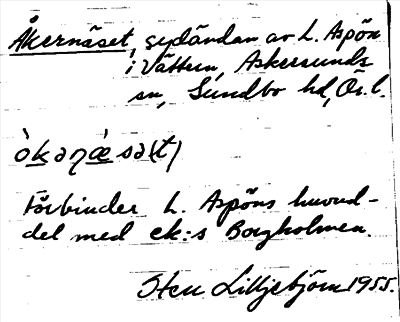 Åkernäset, sydändan av L. Aspön
i Vättern, Askersunds
sn, Sundbo hd, Ör. l.
Förbinder L. Aspöns huvud-
del med ek:s Borgholmen.
Sten Lilljebjörn 1955.